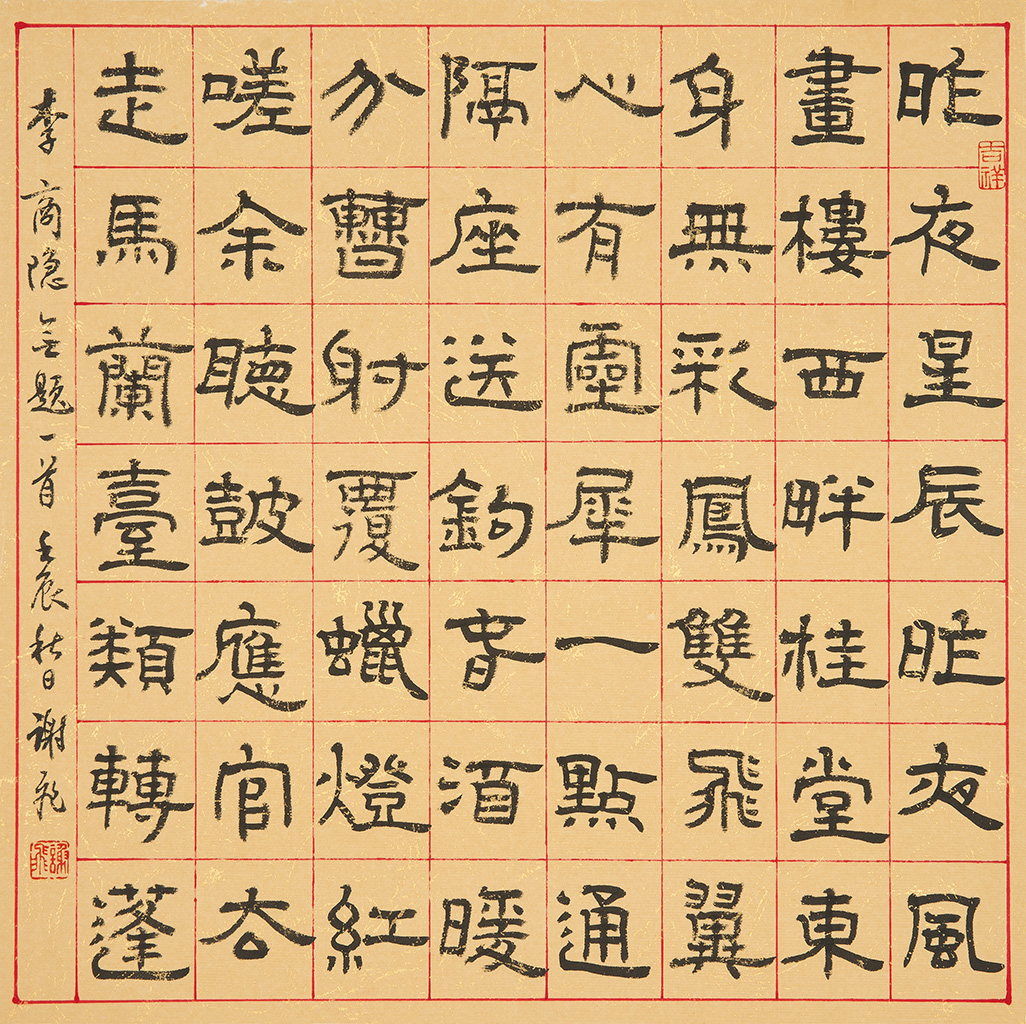 昨夜星辰昨夜風
畫樓西畔桂堂東
身無彩鳳雙飛翼
心有靈犀一點通
隔座送鉤春酒暖
分曹射覆蠟燈紅
嗟余聽鼓應官去
走馬蘭臺類轉蓬
李商隐無题一首壬辰秋日谢飛
吉祥
謝飛